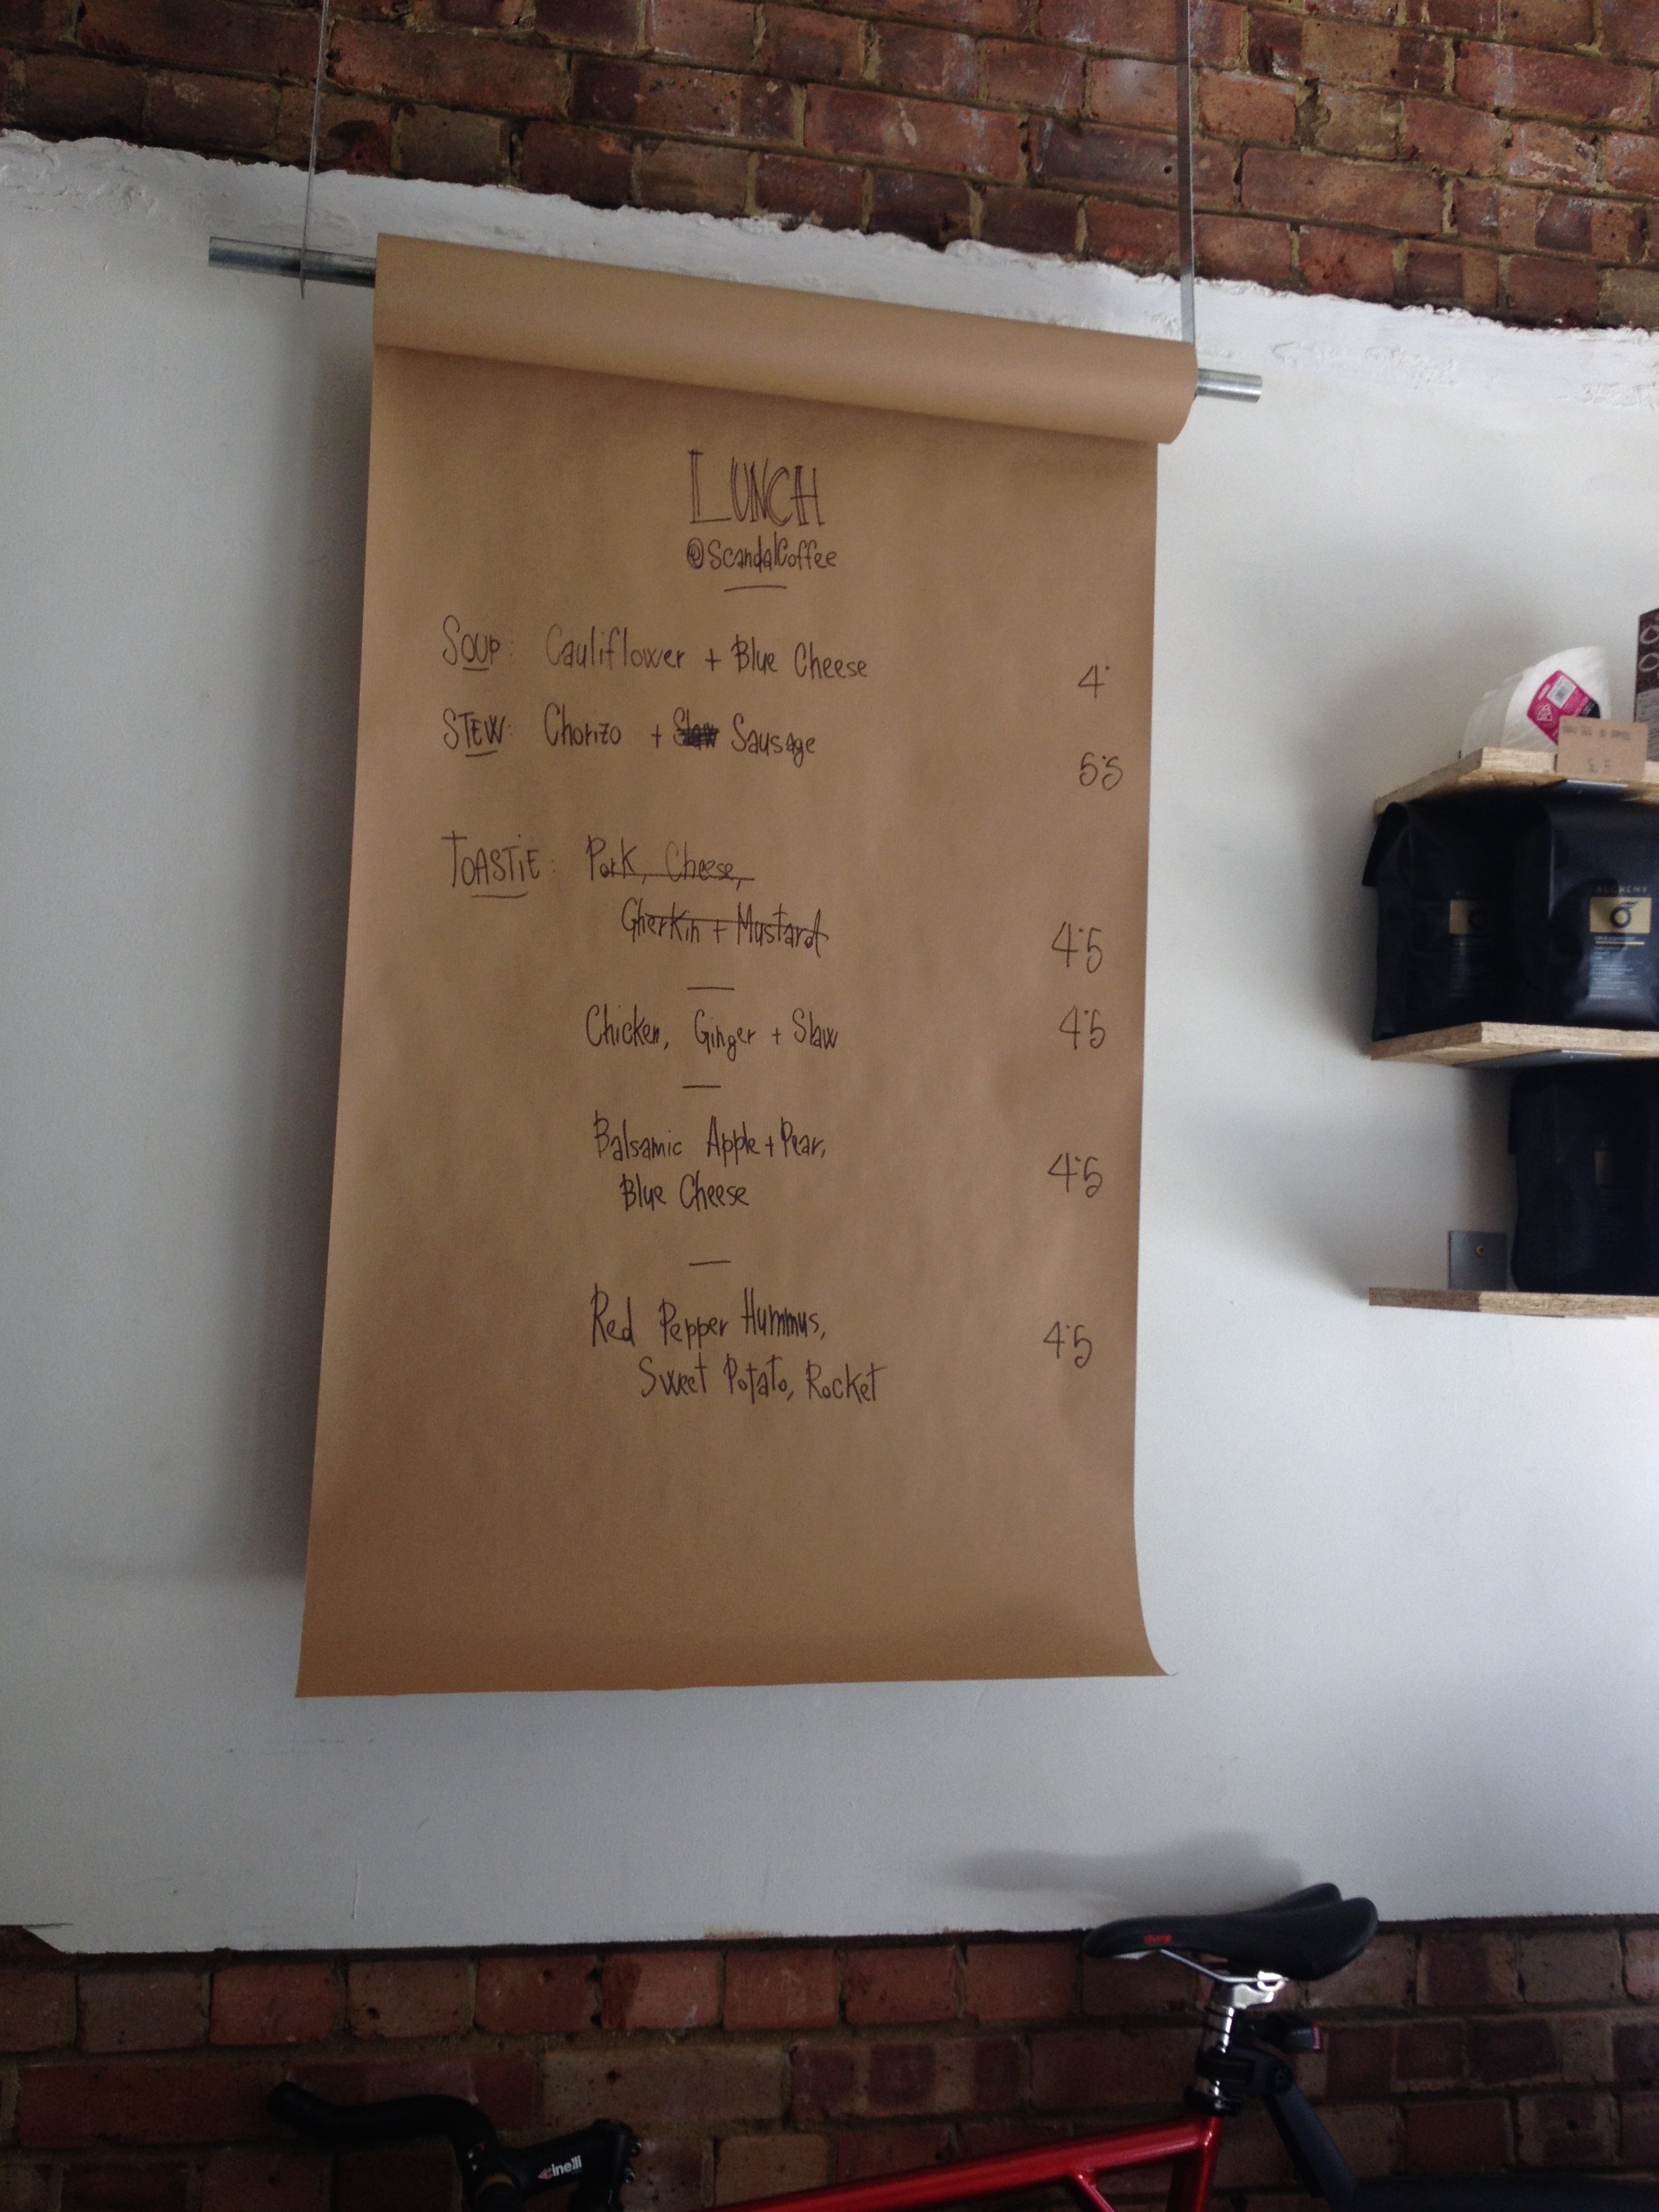 LUNCH
@ScandalCoffee
SOUP: Cauliflower + Blue Cheese 4·
STEW: Chorizo + Slaw Sausage 5·5
TOASTiE: Pork, Cheese,
Gherkin + Mustard 4·5
Chicken, Ginger + Slaw 4·5
Balsamic Apple + Pear,
Blue Cheese 4·5
Red Pepper Hummus, 4·5
Sweet Potato, Rocket
ALCHEMY
cinelli